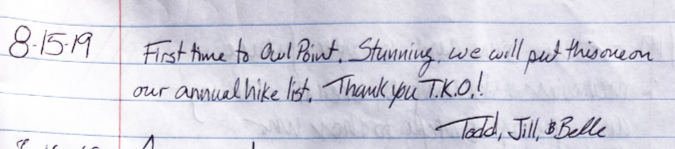 8-15-19 First time to Owl Point. Stunning, we will put this one on
our annual hike list. Thank you T.K.O.!
Todd, Jill, & Belle